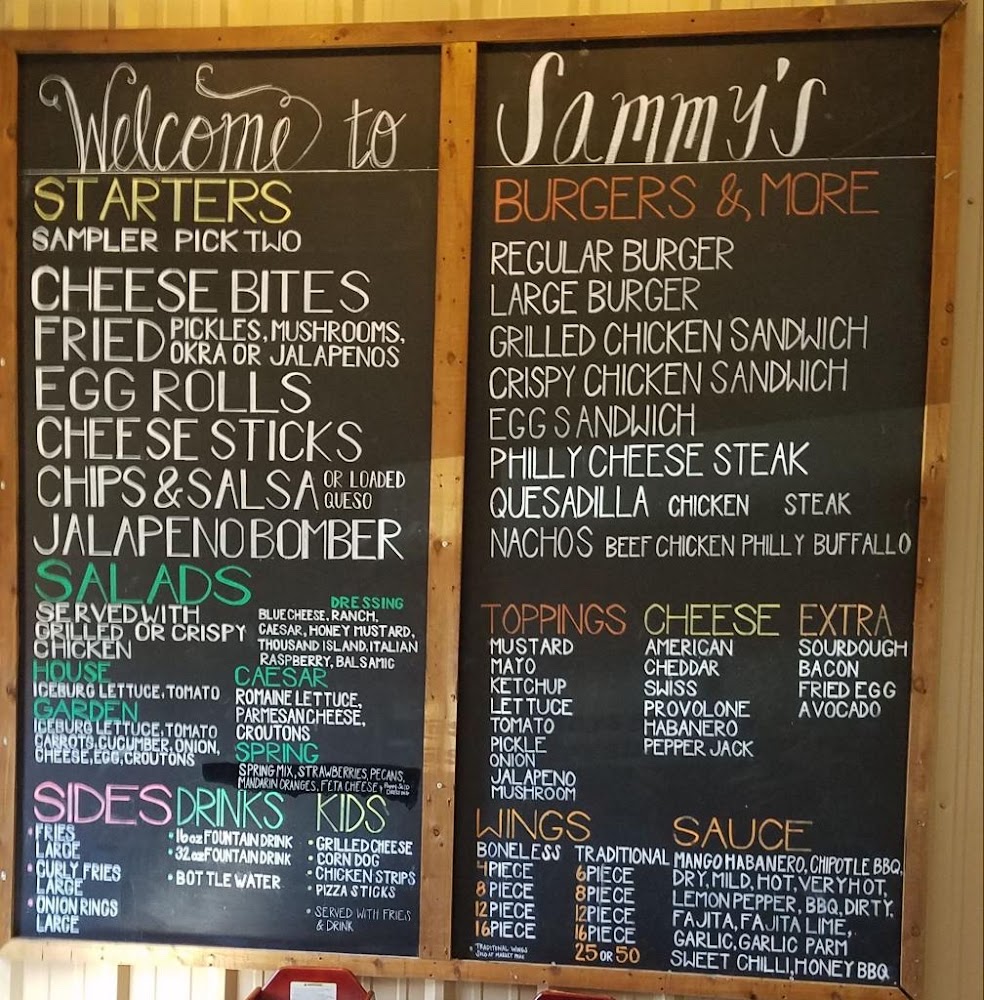 Welcome to
STARTERS
SAMPLER PICK TWO
CHEESE BITES
FRIED PICKLES, MUSHROOMS,
OKRA OR JALAPENOS
EGG ROLLS
CHEESE STICKS
CHIPS & SALSA OR LOADED
QUESO
JALAPENO BOMBER
SALADS
SERVED WITH
GRILLED OR CRISPY
CHICKEN
DRESSING
BLUE CHEESE, RANCH,
CAESAR, HONEY MUSTARD,
THOUSAND ISLAND, ITALIAN
RASPBERRY, BALSAMIC
HOUSE
ICEBURG LETTUCE, TOMATO
GARDEN
ICEBURG LETTUCE, TOMATO
CARROTS, CUCUMBER, ONION,
CHEESE, EGG, CROUTONS
CAESAR
ROMAINE LETTUCE,
PARMESAN CHEESE,
CROUTONS
SPRING
SPRING MIX, STRAWBERRIES, PECANS,
MANDARIN ORANGES, FETA CHESSE,
SIDES
• FRIES
LARGE
• CURLY FRIES
LARGE
• ONION RINGS
LARGE
DRINKS
• 16 oz FOUNTAIN DRINK
• 32 oz FOUNTAIN DRINK
• BOTTLE WATER
KIDS
• GRILLED CHEESE
• CORN DOG
• CHICKEN STRIPS
• PIZZA STICKS
• SERVED WITH FRIES
& DRINK
Sammy's
BURGERS & MORE
REGULAR BURGER
LARGE BURGER
GRILLED CHICKEN SANDWICH
CRISPY CHICKEN SANDWICH
EGG SANDWICH
PHILLY CHEESE STEAK
QUESADILLA CHICKEN STEAK
NACHOS BEEF CHICKEN PHILLY BUFFALLO
TOPPINGS
MUSTARD
MAYO
KETCHUP
LETTUCE
TOMATO
PICKLE
ONION
JALAPENO
MUSHROOM
CHEESE
AMERICAN
CHEDDAR
SWISS
PROVOLONE
HABANERO
PEPPER JACK
EXTRA
SOURDOUGH
BACON
FRIED EGG
AVOCADO
WINGS
BONELESS
4 PIECE
8 PIECE
12 PIECE
16 PIECE
TRADITIONAL
6 PIECE
8 PIECE
12 PIECE
16 PIECE
25 OR 50
• TRADITIONAL WINGS
SOLD AT MARKET PRICE
SAUCE
MANGO HABANERO, CHIPOTLE BBQ,
DRY, MILD, HOT, VERY HOT,
LEMON PEPPER, BBQ, DIRTY,
FAJITA, FAJITA LIME,
GARLIC, GARLIC PARM
SWEET CHILLI, HONEY BBQ